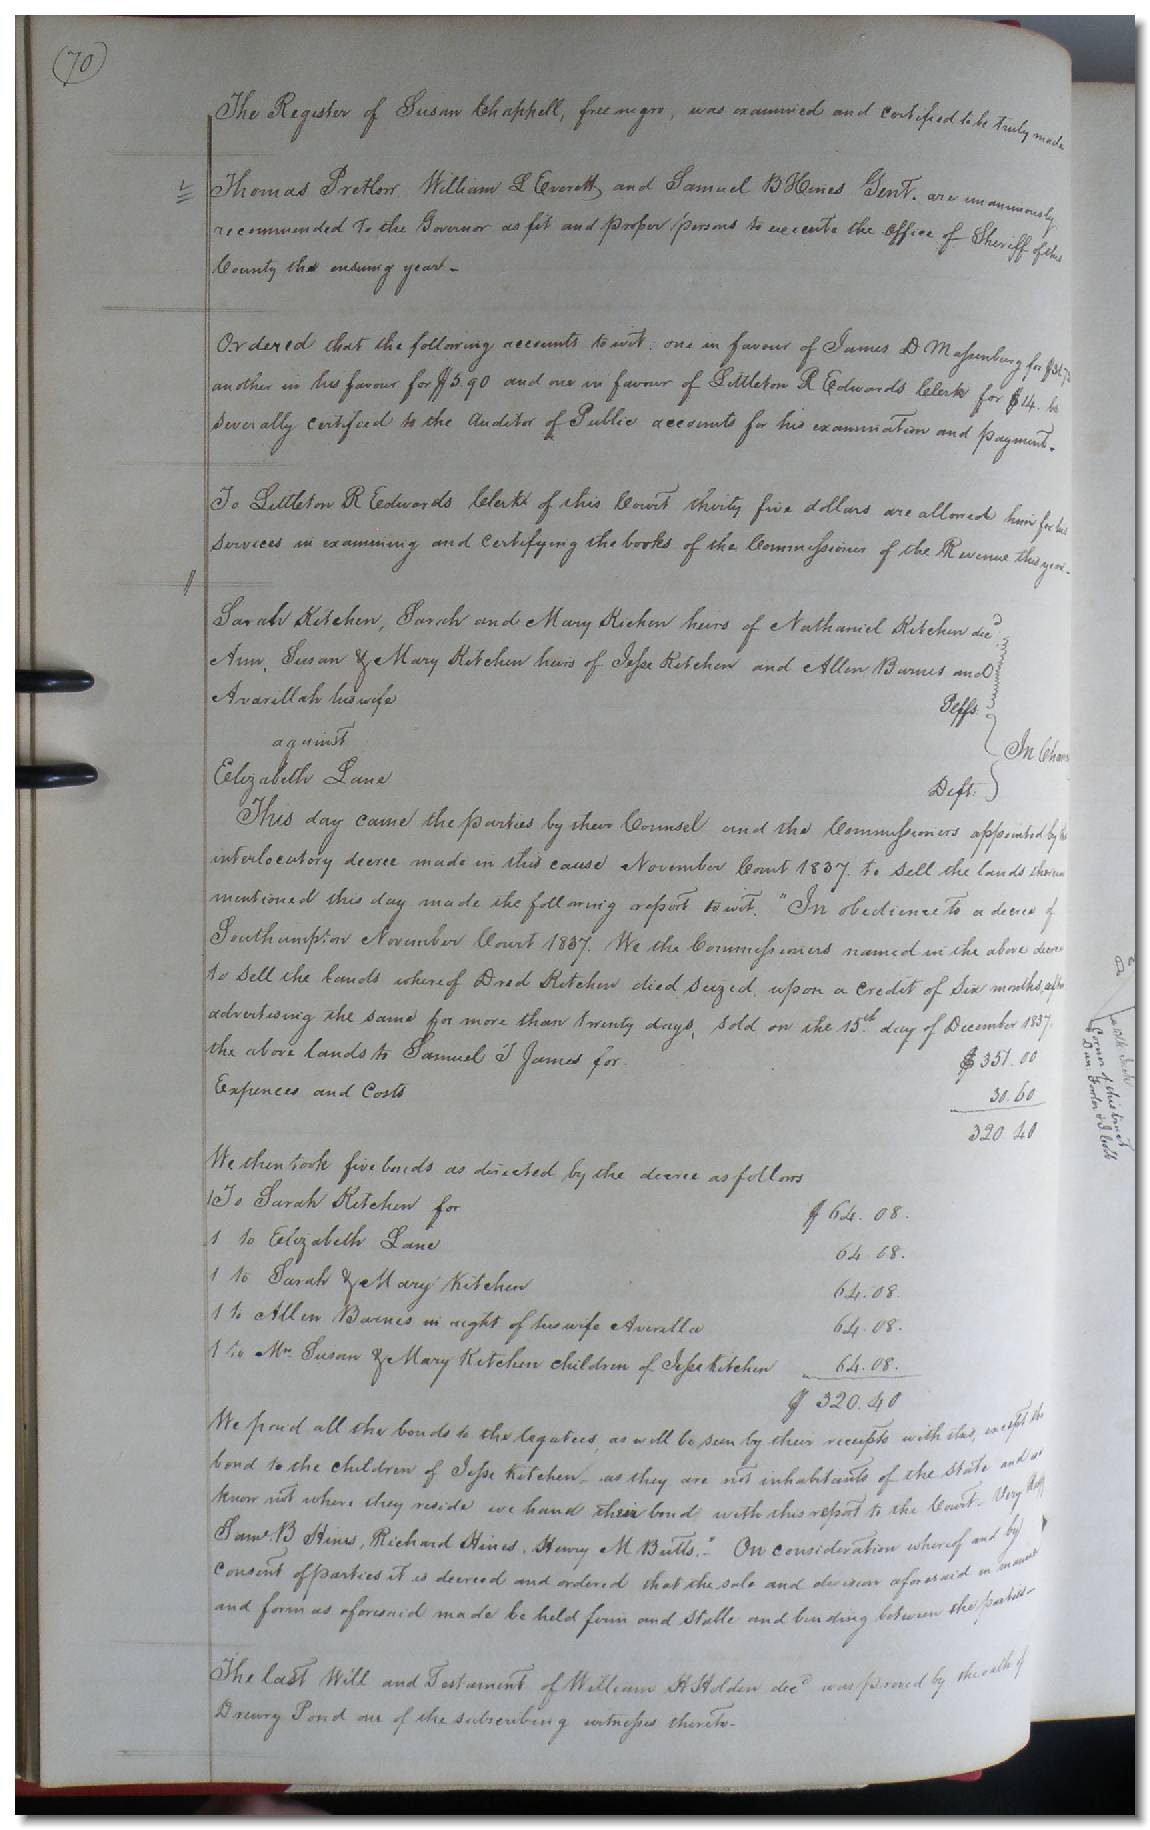 (70)
The Register of Susan Chappell, free negro, was examined and certified to be truly made
Thomas Pretlow, William L Everett, and Samuel B Hines Gent. are unanimously
recommended to the Governor as fit and proper persons to execute the office of Sheriff of this
County the ensuing year.
Ordered that the following accounts to wit: one in favour of James D Massenburg for
another in his favour for $5.90 and one in favour of Littleton R Edwards Clerk for $14. be
severally certified to the Auditor of Public accounts for his examination and payment.
To Littleton R Edwards Clerk of this Court thirty five dollars are allowed him for his
services in examining and certifying the books of the Commissioner of the Revenue this year.
Sarah Kitchen, Sarah and Mary Kichen heirs of Nathaniel Kitchen decd
Ann, Susan & Mary Kitchen heirs of Jesse Kitchen and Allen Barnes and
Avarillah his wife Peffs.
against In Chan
Elizabeth Lane Deft.
This day came the parties by their Counsel and the Commissioners appointed by the
interlocutory decree made in this cause November Court 1837. to sell the lands therein
mentioned this day made the following report to wit. "In obedience to a decree of
Southampton November Court 1837. We the Commissioners named in the above decree
to sell the lands whereof Dred Kitchen died seized, upon a credit of six months, after
advertising the same for more than twenty days, sold on the 15th day of December 1837.
the above lands to Samuel T James for $351.00
Expences and Costs 30.60
320.40
We then took five bonds as directed by the decree as follows
1 To Sarah Kitchen for $64.08.
1 to Elizabeth Lane 64.08.
1 to Sarah & Mary Kitchen 64.08.
1 to Allen Barnes in right of his wife Averilla 64.08.
1 to Susan & Mary Kitchen children of Jesse Kitchen 64.08.
$320.40
We paid all the bonds to the legatees, as will be seen by their receipts with this, except the
bond to the children of Jesse Kitchen as they are not inhabitants of the state and we
know not where they reside we hand their bond with this report to the Court. Very
Saml B Hines, Richard Hines, Henry M Butts." On consideration whereof and by
consent of parties it is decreed and ordered that the sale and division aforesaid in manner
and form as aforesaid made be held firm and stable and binding between the parties.
The last Will and Testament of William H Holden decd was proved by the oath of
Drewry Pond one of the subscribing witnesses thereto.